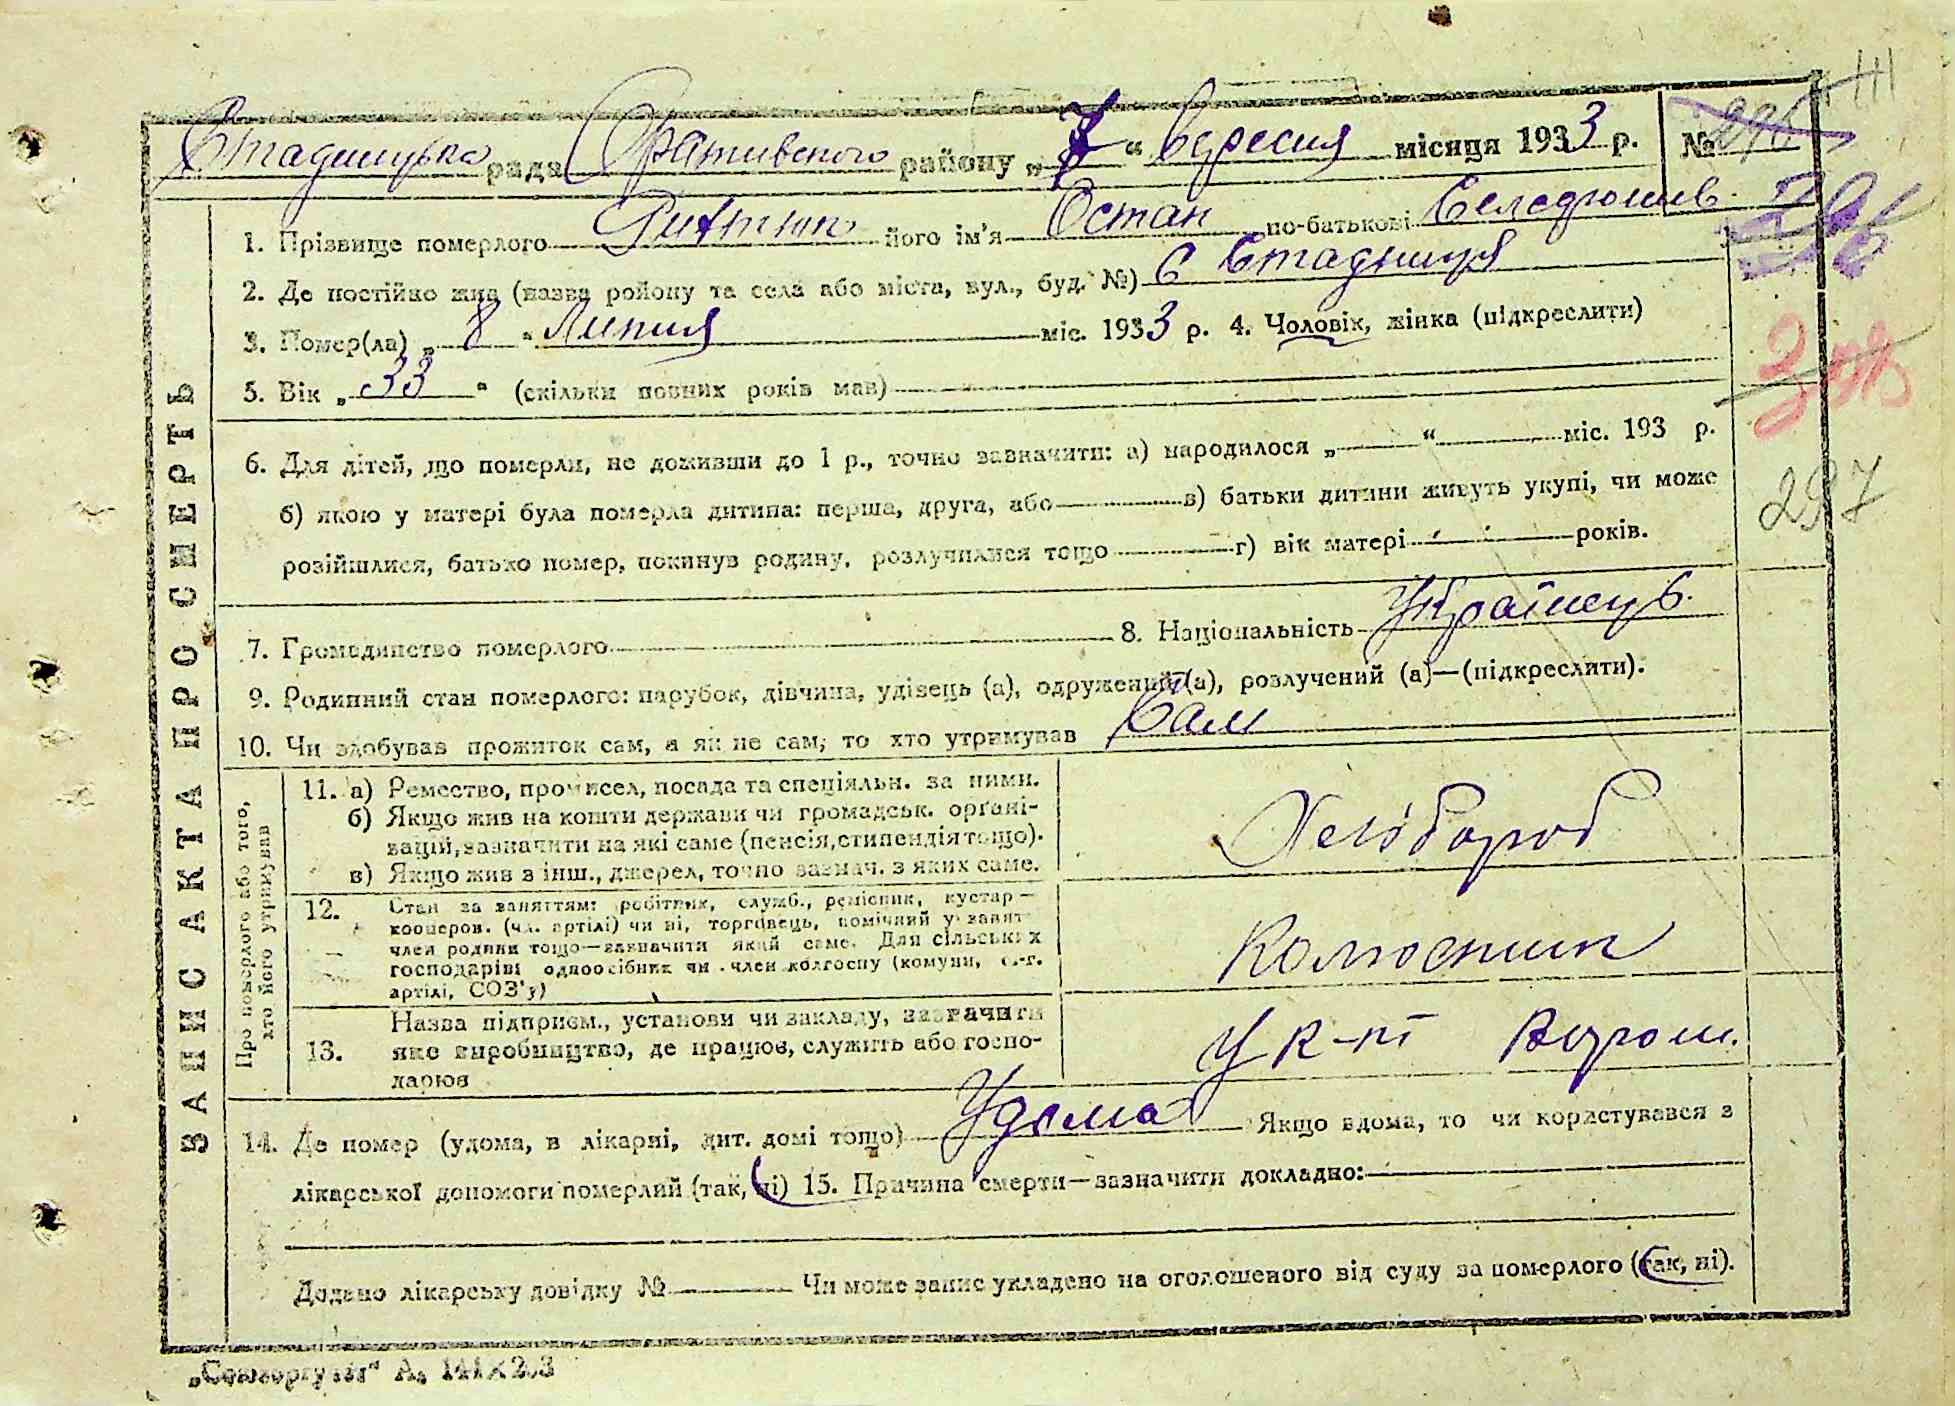 ЗАПИС АКТА ПРО СМЕРТЬ
Стадницька рада Оратівського району „7“ вересня місяця 1933 р. №
1. Прізвище померлого його ім'я Остап по-батькові
2. Де постійно жив (назва району та села або міста, вул., буд. №) С Стадниця
3. Помер(ла) „8“ Липня міс. 1933 р. 4. Чоловік, жінка (підкреслити)
5. Вік „33“ (скільки повних років мав)
6. Для дітей, що померли, не доживши до 1 р., точно зазначити: а) народилося „ “ міс. 193 р.
297
б) якою у матері була померла дитина: перша, друга, або в) батьки дитини живуть укупі, чи може
розійшлися, батько помер, покинув родину, розлучилися тощо г) вік матері років.
7. Громадянство померлого 8. Національність Українець
9. Родинний стан померлого: парубок, дівчина, удівець (а), одружений (а), розлучений (а)—(підкреслити).
10. Чи здобував прожиток сам, а як не сам, то хто утримував Сам
Про померлого або того, хто його утримував
11. а) Ремество, промисел, посада та спеціяльн. за ними.
б) Якщо жив на кошти держави чи громадськ. органі-
зацій, зазначити на які саме (пенсія, стипендія тощо).
в) Якщо жив з інш., джерел, точно зазнач. з яких саме.
Хлібороб
12. Стан за заняттям: робітник, служб., ремісник, кустар—
кооперов. (чл. артілі) чи ні, торговець, помічний у занят
член родини тощо—зазначити який саме. Для сільських
господарів: одноосібник чи член колгоспу (комуни, с.-г.
артілі, СОЗ'у)
Колгоспник
13. Назва підприєм., установи чи закладу, зазначити
яке виробництво, де працює, служить або госпо-
дарює
У к-пі Ворош.
14. Де помер (удома, в лікарні, дит. домі тощо) Удома Якщо вдома, то чи користувався з
лікарської допомоги померлий (так, ні) 15. Причина смерти—зазначити докладно:
Додано лікарську довідку № Чи може запис укладено на оголошеного від суду за померлого (так, ні).